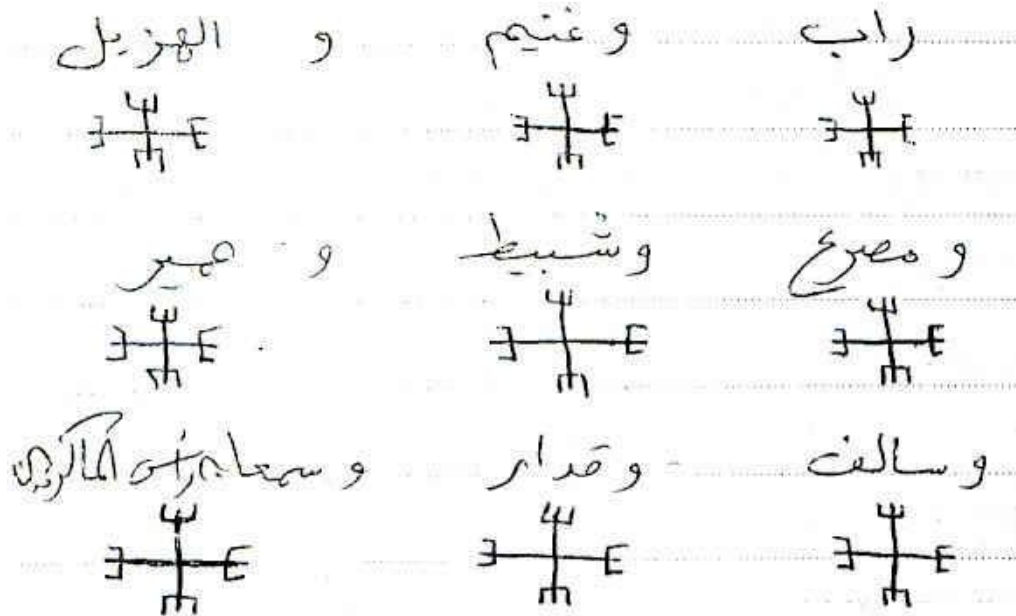 راب وغنيم و الهزيل
و مصرع وشبيط و عمير
و سالف و قدار و سمعان رأس الماكرين